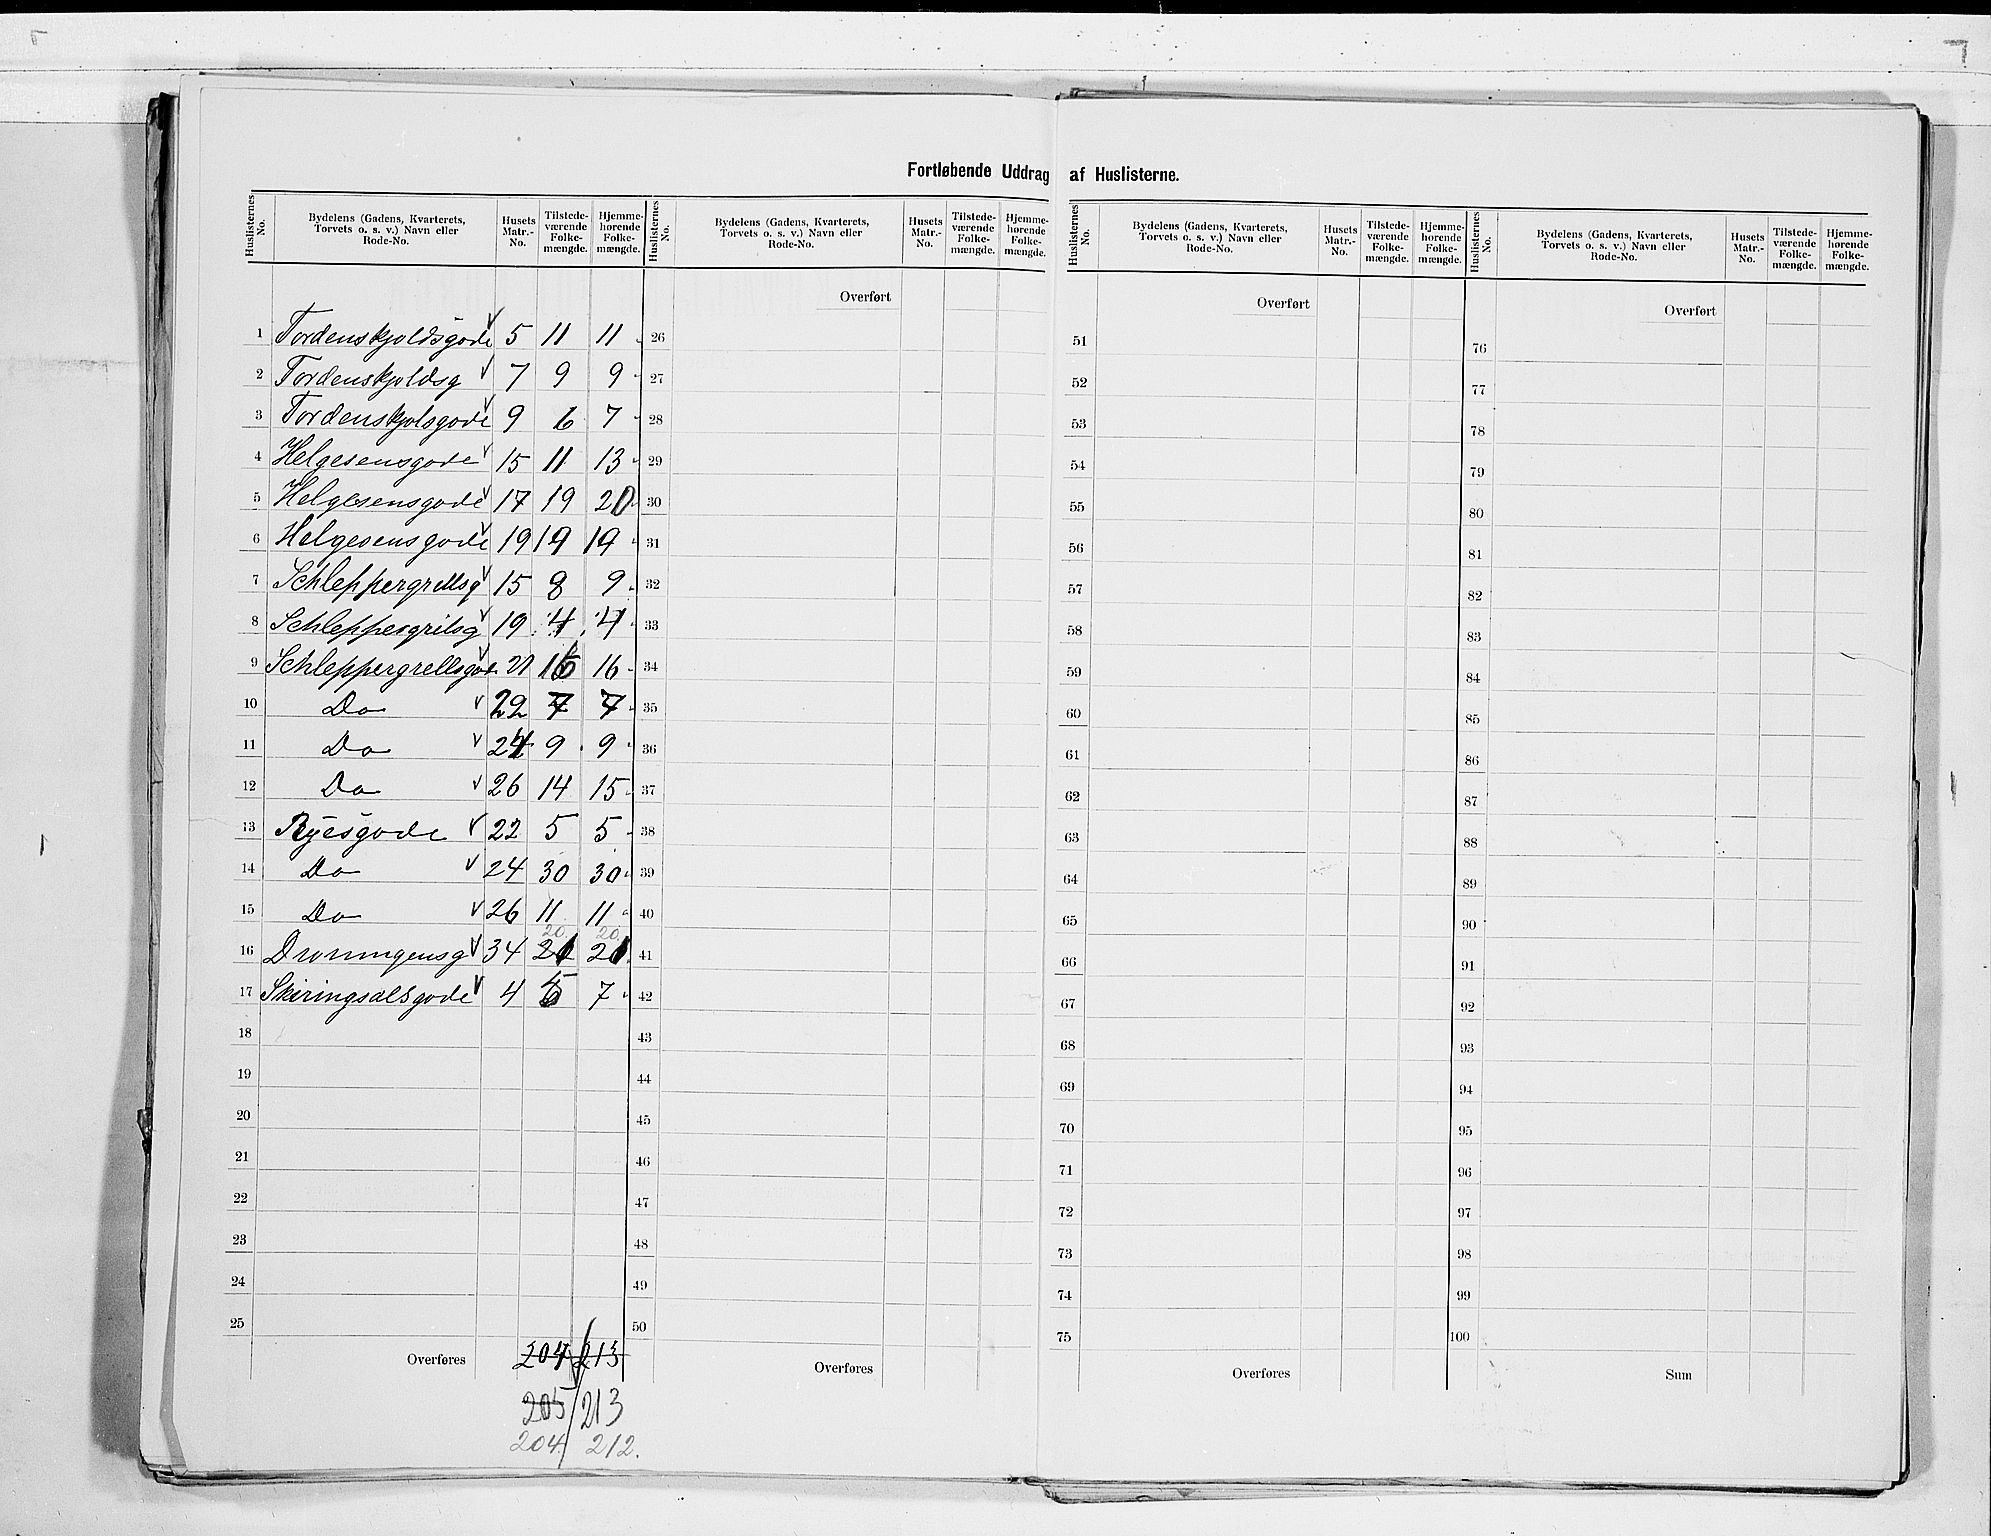 Fortløbende Uddrag af Huslisterne.
Huslisternes No. Bydelens (Gadens, Kvarterets, Torvets o. s. v.) Navn eller Rode-No. Husets Matr.-No. Tilstedeværende Folkemængde. Hjemmehørende Folkemængde.
1 Tordenskjoldsgade v 5 11 11
2 Tordenskjoldsg v 7 9 9
3 Tordenskjolsgade v 9 6 7
4 Helgesensgade v 15 11 13
5 Helgesensgade v 17 19 20
6 Helgesensgade v 19 19 19
7 Schleppergrellsg v 15 8 9
8 Schleppesgrilsg v 19 4 4
9 Schleppergrellsgad. v 21 16
10 Do v 22 7 7
11 Do v 24 9 9
12 Do v 26 14 15
13 Ryesgade v 22 5 5
14 Do v 24 30 30
15 Do v 26 11 11
20. 20.
16 Droningensg v 34 21 21
17 Skiringsalsgade v 4 7
18
19
20
21
22
23
24
25
Overføres 204 213
205 213
204. 212.
Huslisternes No. Bydelens (Gadens, Kvarterets, Torvets o. s. v.) Navn eller Rode-No. Husets Matr.-No. Tilstedeværende Folkemængde. Hjemmehørende Folkemængde.
Overført
26
27
28
29
30
31
32
33
34
35
36
37
38
39
40
41
42
43
44
45
46
47
48
49
50
Overføres
Huslisternes No. Bydelens (Gadens, Kvarterets, Torvets o. s. v.) Navn eller Rode-No. Husets Matr.-No. Tilstedeværende Folkemængde. Hjemmehørende Folkemængde.
Overført
51
52
53
54
55
56
57
58
59
60
61
62
63
64
65
66
67
68
69
70
71
72
73
74
75
Overføres
Huslisternes No. Bydelens (Gadens, Kvarterets, Torvets o. s. v.) Navn eller Rode-No. Husets Matr.-No. Tilstedeværende Folkemængde. Hjemmehørende Folkemængde.
Overført
76
77
78
79
80
81
82
83
84
85
86
87
88
89
90
91
92
93
94
95
96
97
98
99
100
Sum